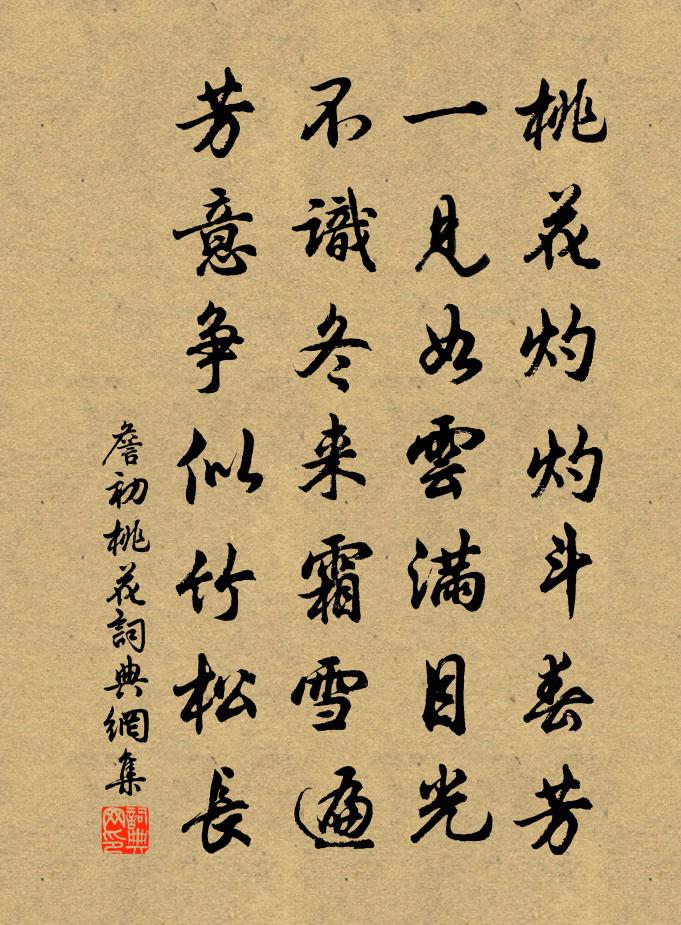 桃花灼灼斗春芳
一見如雲滿目光
不識冬来霜雪遍
芳意争似竹松長
詹初桃花詞典網集
詞典网印